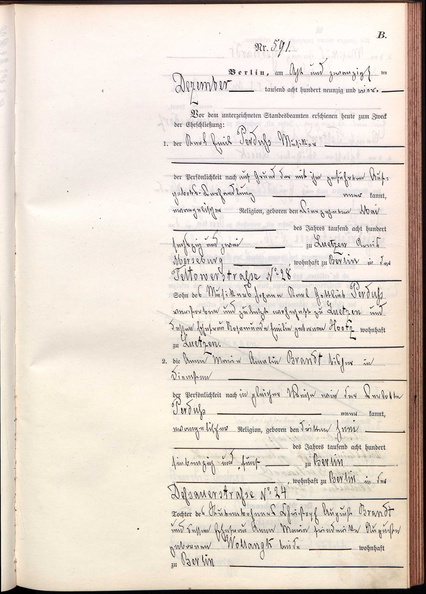 B.
Nr. 591.
Berlin, am Acht und zwanzigsten
Dezember tausend acht hundert neunzig und vier.
Vor dem unterzeichneten Standesbeamten erschienen heute zum Zweck
der Eheschließung:
1. der Karl Emil Perduß Musiker
der Persönlichkeit nach auf Grund der mit ihm geführten Auf-
gebots-Verhandlung kannt,
evangelischer Religion, geboren den Mai
des Jahres tausend acht hundert
sechszig und zwei zu Luetzen Kreis
Merseburg, wohnhaft zu Berlin in der
Teltowerstraße No 28
Sohn des Musikers Johann Karl Gottlieb Perduß
verstorben und zuletzt wohnhaft zu Luetzen und
dessen Ehefrau Rosamunde Emilie geborenen wohnhaft
zu Luetzen.
2. die Anna Maria Amalie Brandt bisher in
Diensten
der Persönlichkeit nach in gleicher Weise wie der Verlobte
Perduß kannt,
evangelischer Religion, geboren den dritten Juni
des Jahres tausend acht hundert
siebenzig und fünf zu Berlin
, wohnhaft zu Berlin in der
Dessauerstraße No 24
Tochter des Christoph August Brandt
und dessen Ehefrau Anna Maria Friederike Auguste
geborenen beide wohnhaft
zu Berlin